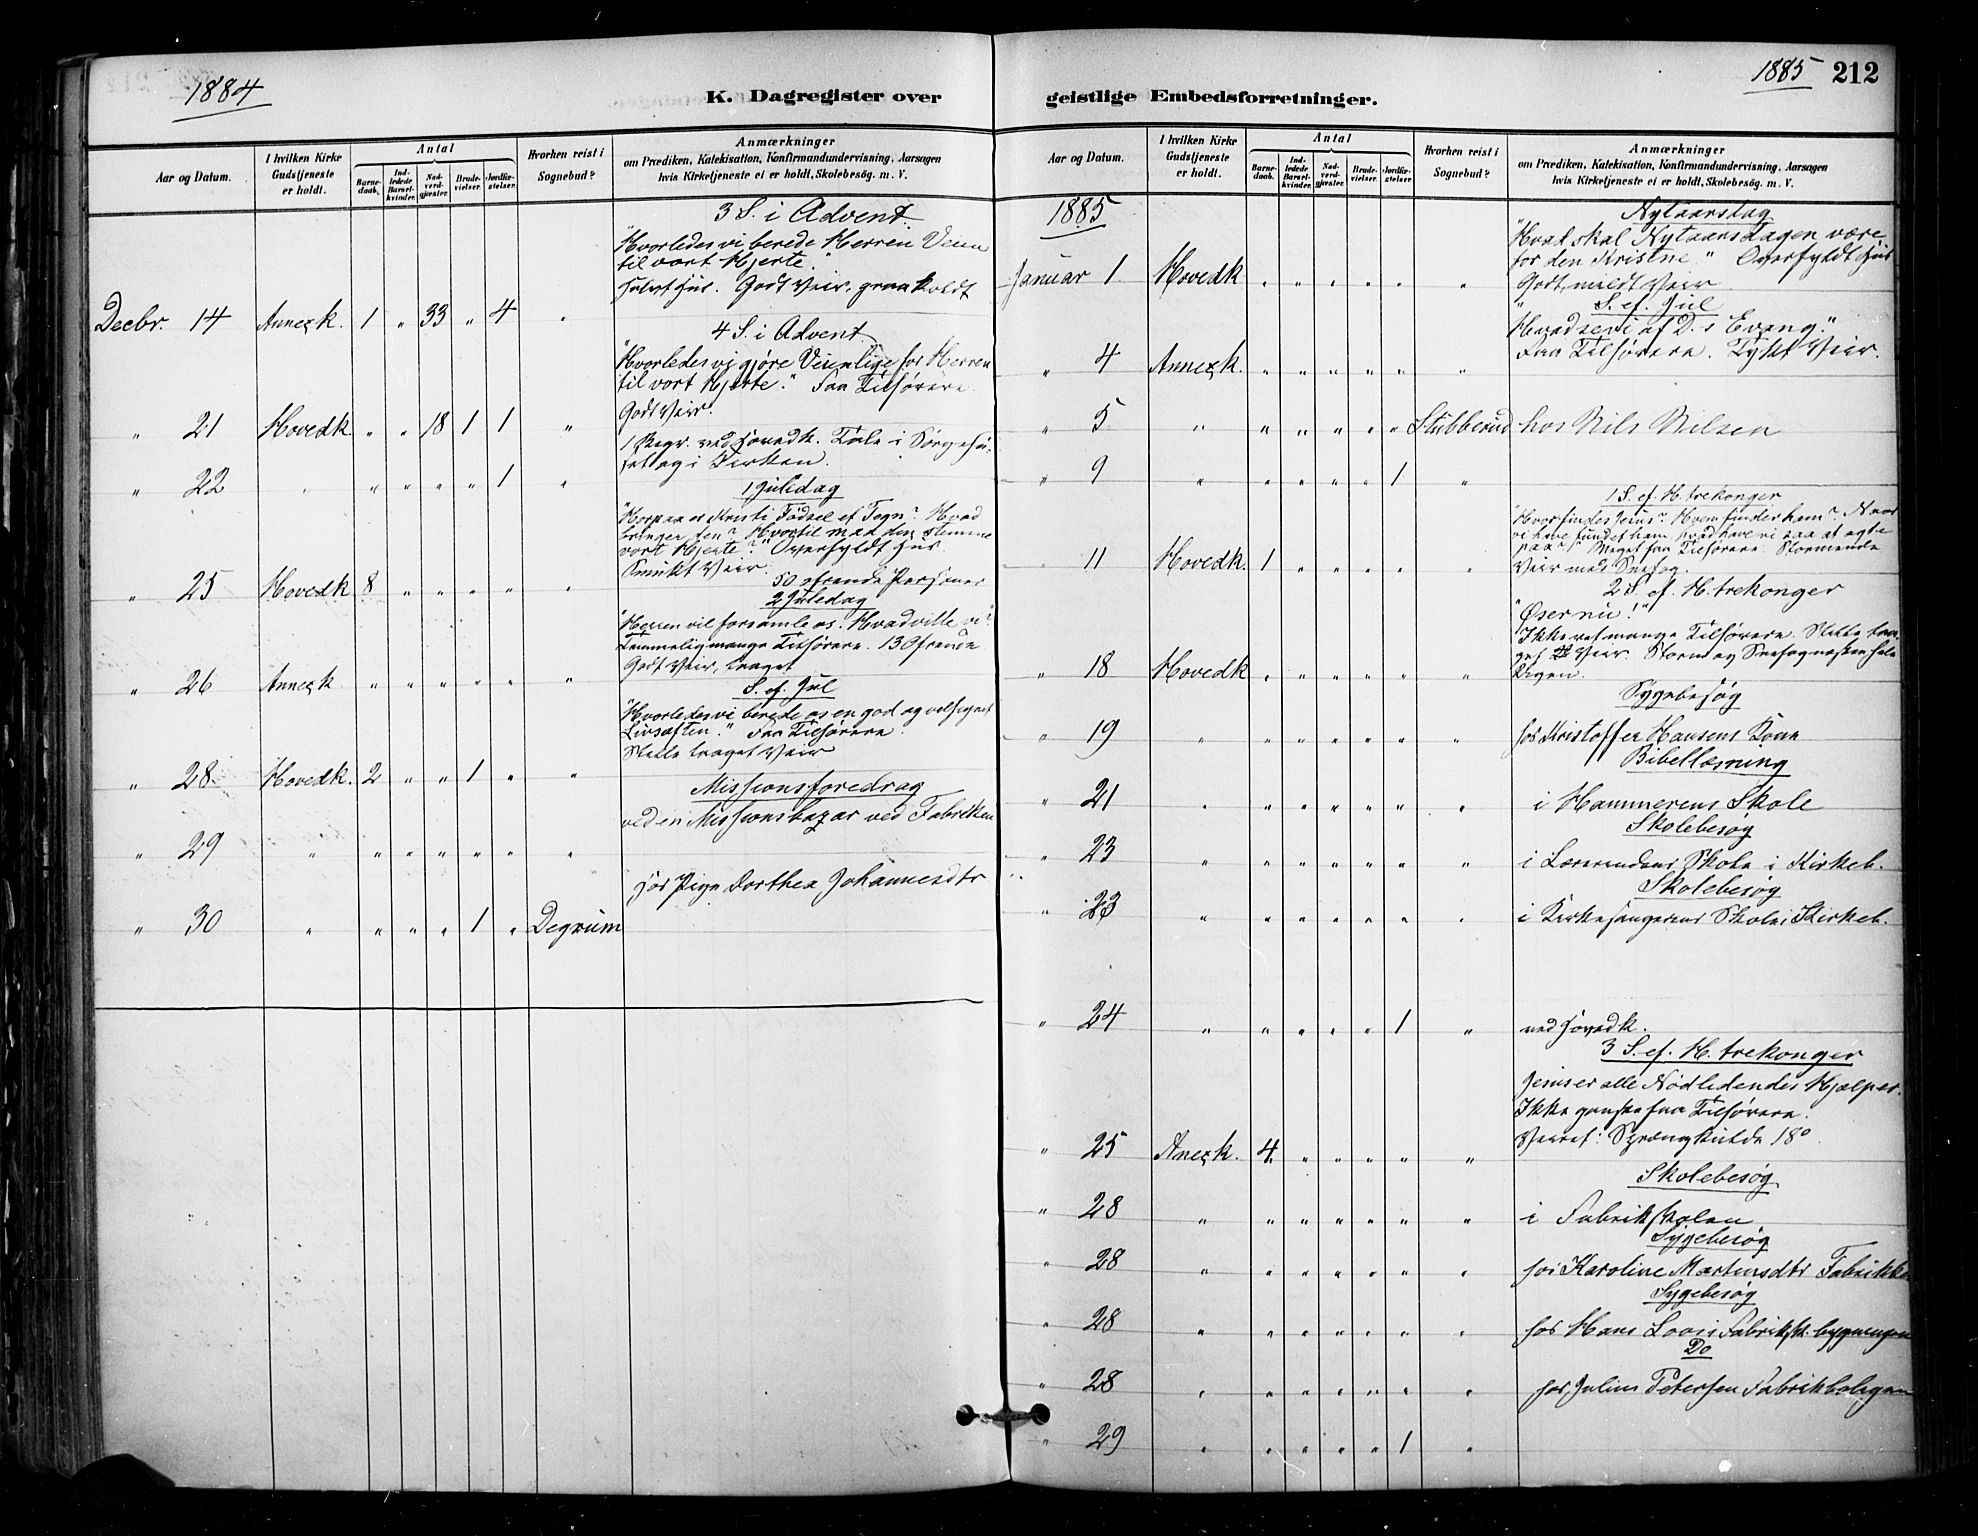 1884
K. Dagregister over
Aar og Datum.
I hvilken Kirke Gudstjeneste er holdt.
Antal
Barnedaab.
Indledede Barselkvinder.
Nadverdgjester.
Brudevielser.
Jordfæstelser.
Hvorhen reist i Sognebud?
Anmærkninger
om Prædiken, Katekisation, Konfirmandundervisning, Aarsagen
hvis Kirketjeneste ei er holdt, Skolebesøg. m. V.
3 S. i Advent.
"Hvorledes vi berede Herren Veien
til vort Hjerte."
Godt Veir, koldt
Decbr. 14 Annexk. 1 " 33 " 4 "
4 S. i Advent
"Hvorledes vi gjøre Veien lige for Herren
til vort Hjerte." Faa Tilhørere
Godt Veir.
" 21 Hovedk. " " 18 1 1 "
1 Begr. ved Hovedk. Tale i Sørgehu-
set og i Kirken.
" 22 " " " " " 1 "
1 Juledag
Kristi Fødsel et Tegn? Hvad
bringer den? Hvortil maa den stemme
vort Hjerte?" Overfyldt Hus
Smukt Veir.
50 ofrende Personer
" 25 Hovedk 8 " " " " "
2 Juledag
"Herren vil forsamle os. Hvad ville vi?"
Temmelig mange Tilhørere. 13 Ofrende
Godt Veir, taaget
" 26 Annexk " " " " " "
S. ef. Jul
"Hvorledes vi berede os en god og velsignet
Livsaften." Faa Tilhørere.
Slette taaget Veir
" 28 Hovedk. 2 " " 1 " "
Missionsforedrag
ved en Missionsbazar ved Fabriken
" 29 " " " " " " "
hos Pige Dorthea Johannesdtr
" 30 " " " " 1 " Degrum
1885 212
geistlige Embedsforretninger.
Aar og Datum.
I hvilken Kirke Gudstjeneste er holdt.
Antal
Barnedaab.
Indledede Barselkvinder.
Nadverdgjester.
Brudevielser.
Jordfæstelser.
Hvorhen reist i Sognebud?
Anmærkninger
om Prædiken, Katekisation, Konfirmandundervisning, Aarsagen
hvis Kirketjeneste ei er holdt, Skolebesøg. m. V.
1885
Nytaarsdag
"Hvad skal Nytaarsdagen være
for den Kristne" Overfyldt Hus
Godt mildt Veir
Januar 1 Hovedk " " " " " "
S. ef. Jul
"Hvad se vi af D.s Evang."
Faa Tilhørere. Tykt Veir.
" 4 Annexk. " " " " " "
" 5 " " " " " " Stubberud hos Nils Nilsen
" 9 " " " " " 1 "
1 S. ef. H. trekonger
"Hvor findes Jesus? Hvem finder ham? Naar
vi have fundet ham, hvad have vi saa at agte
paa?" Meget faa Tilhørere. Stormende
Veir med Snefog.
" 11 Hovedk. 1 " " " " "
2 S. ef. H. trekonger
"Øser nu!"
Ikke ret mange Tilhørere. Slette taa-
get Veir. Storm og Snefog
" 18 Hovedk " " " " " "
Sygebesøg
" 19 " " " " " " " hos Kristoffer Hansens Kone
Bibellæsning
" 21 " " " " " " " i Hammerens Skole
Skolebesøg
" 23 " " " " " " " i Lærerindens Skole i Kirkeb.
Skolebesøg
" 23 " " " " " " " i Kirkesangerens Skole i Kirkeb.
" 24 " " " " " 1 " ved Hovedk.
3 S. ef. H. trekonger
Jesus er alle Nødlidendes Hjælper.
Ikke ganske faa Tilhørere.
Veiret: Sprængkulde 18°
" 25 Anexk. 4 " " " " "
Skolebesøg
" 28 " " " " " " " i Fabrikskolen
Sygebesøg
" 28 " " " " " " " hos Karoline Martinsdtr Fabrikke
Sygebesøg
" 28 " " " " " " " hos Hans bygningen
Do
" 28 " " " " " " " hos Julius Petersen Fabrikboligen
" 29 " " " " " 1 "